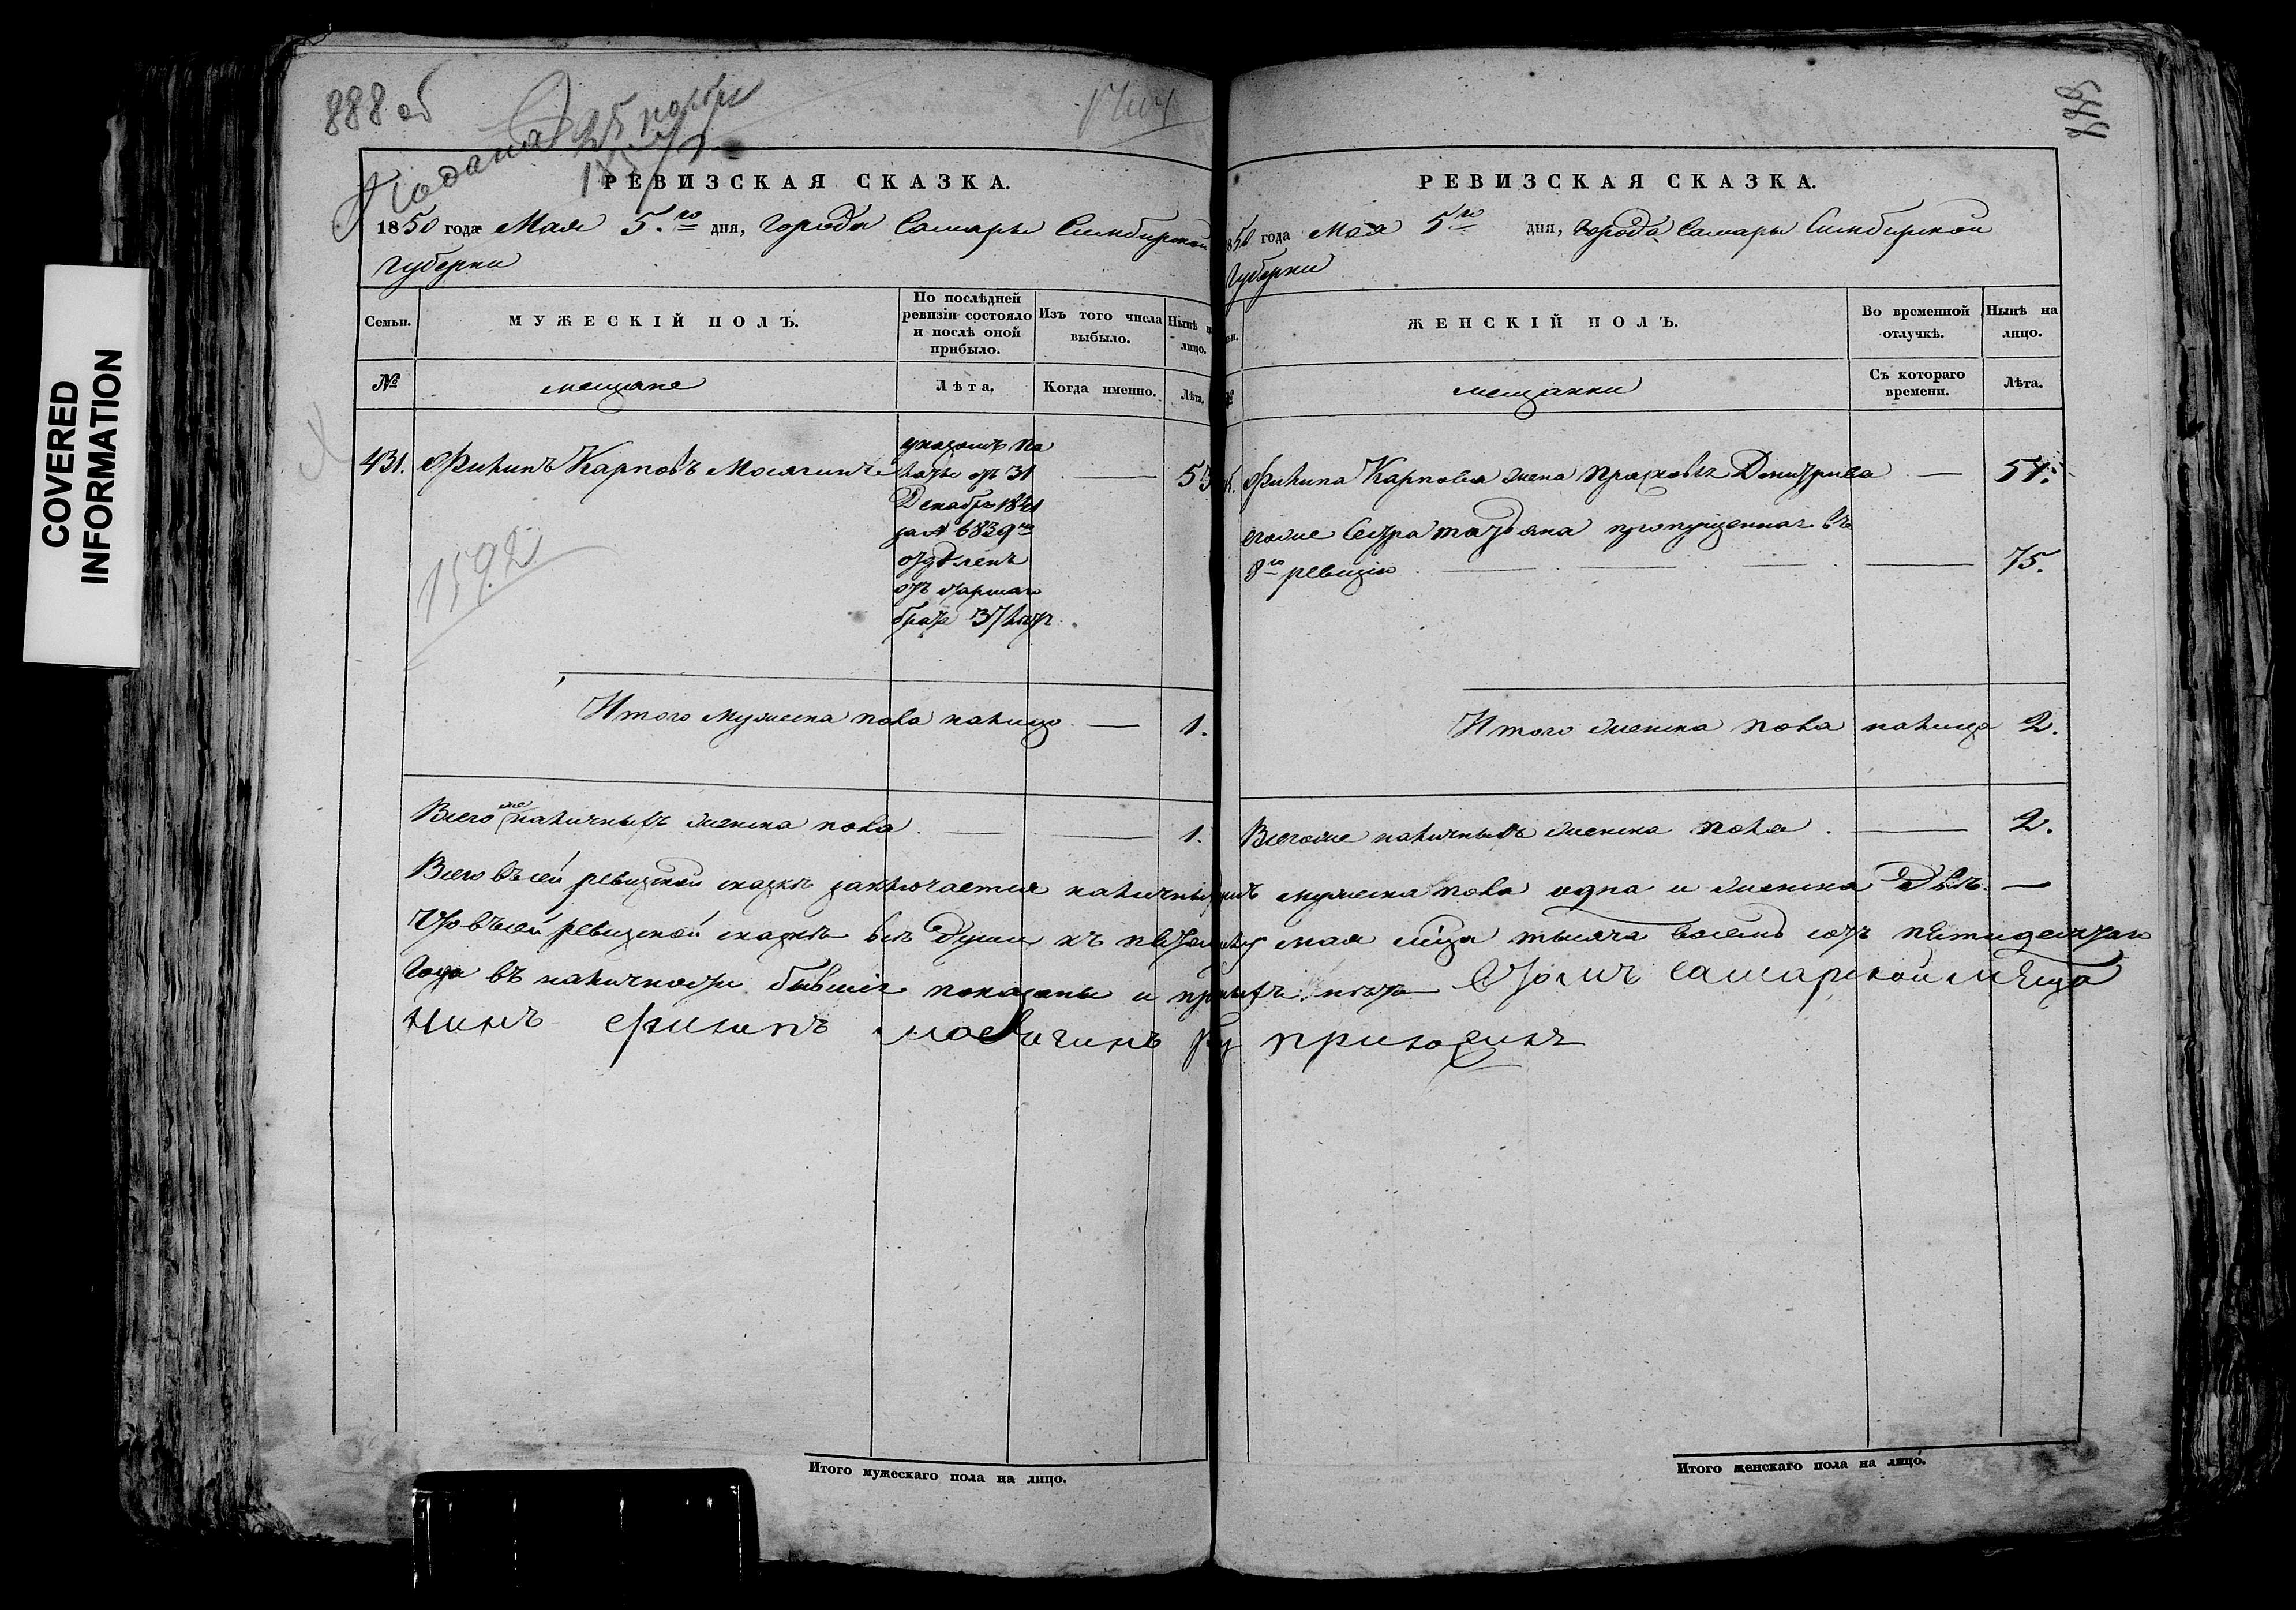 COVERED
INFORMATION
888 об
Подана 25 ноябр
РЕВИЗСКАЯ СКАЗКА.
1850 года Мая 5.го дня, города Самары Симбирской
губернии
Семьи.
МУЖЕСКІЙ ПОЛЪ.
По послѣдней
ревизіи состояло
и послѣ оной
прибыло.
Изъ того числа
выбыло.
Нынѣ на
лицо.
№
мещане
Лѣта.
Когда именно.
Лѣта.
431. Филипъ Карповъ Мосягинъ
указомъ Па
латы отъ 31
Декабря 1841
за № 6839м
отдѣленъ
отъ старшаго
брата 37 лѣтъ
55
1592
Итого мужеска пола налицо — 1.
Всего же наличныхъ женска пола — 1.
РЕВИЗСКАЯ СКАЗКА.
1850 года Мая 5го дня, города Самары Симбирской
Губернии
ЖЕНСКІЙ ПОЛЪ.
Во временной
отлучкѣ.
Нынѣ на
лицо.
мещанки
Съ котораго
времени.
Лѣта.
Филипа Карпова жена Прасковья Дмитриева — 54.
егоже Сестра татьяна пропущенная въ
8ю ревизію — 75.
Итого женска пола налицо 2.
Всегоже наличныхъ женска пола — 2.
Всего въ сей ревизской сказкѣ заключается наличныхъ мужеска пола одна и женска Двѣ. —
Что въ сей ревизской сказкѣ всѣ Души къ пятому мая мца тысяча восемь сотъ пятидесятаго
Года въ наличности бывшія показаны и прописныхъ нѣтъ Втомъ самарской меща
нинъ Филипъ мосягинъ Руку приложилъ
Итого мужескаго пола на лицо.
Итого женскаго пола на лицо.